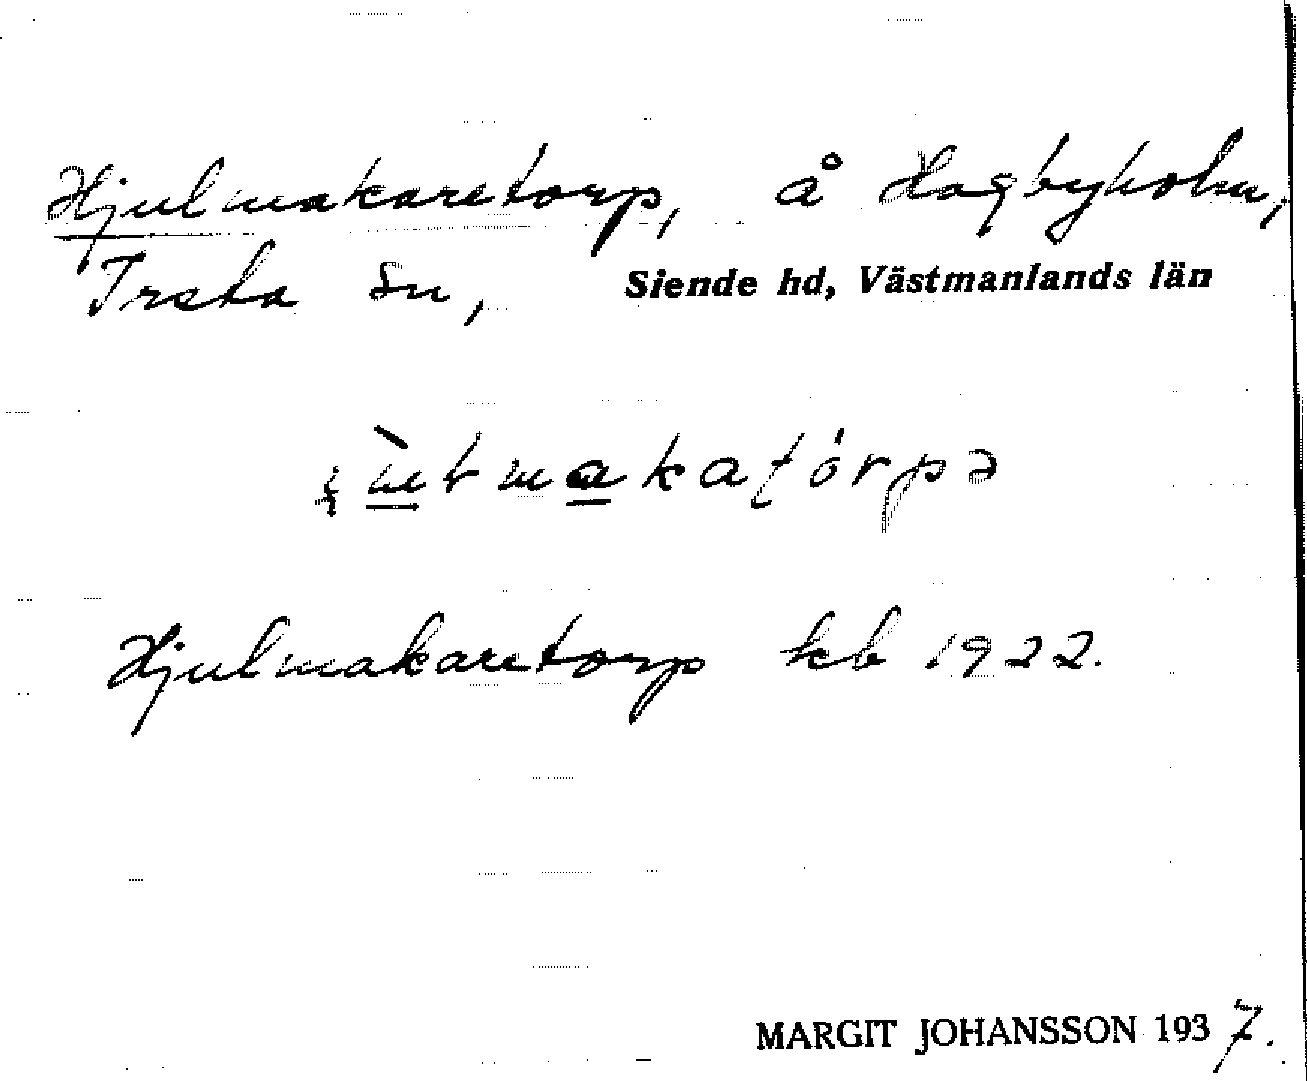 Hjulmakaretorp, å Hagbyholm,
Irsta sn, Siende hd, Västmanlands län
Hjulmakaretorp kb 1922.
MARGIT JOHANSSON 1937.